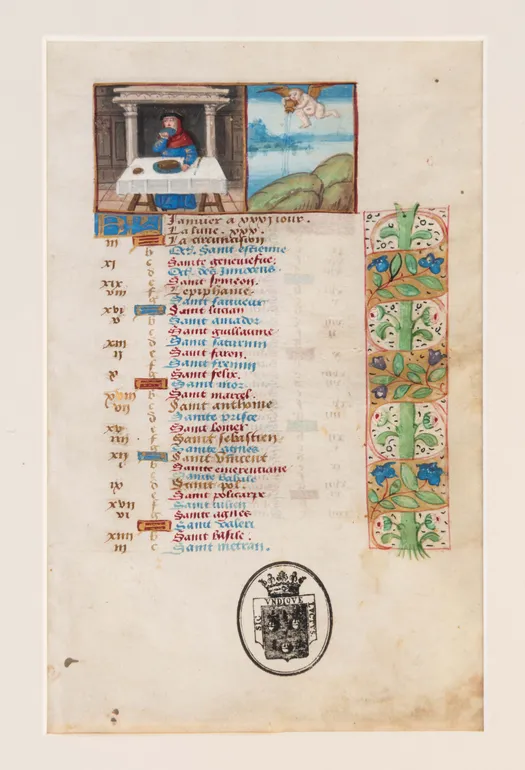 Janvier a xxxi jour.
La lune. xxx.
iii La circuncision
b Oct. Saint estienne
xi c Sainte geneviefve
d Oct. des innocens
xix e Saint symeon
viii f epiphanie
g Saint
xvi Saint lucian
v b Saint amador
c Saint guillaume
xiii d Saint saturnin
ii e Saint faron
f Saint fremin
x g Saint felix
Saint mor
b Saint marcel
vii c Saint anthoine
d Sainte prisce
xv e Saint lomer
f Saint sebastien
xii g Sainte agnes
Saint vincent
b Sainte emerentiane
c Sainte babile
ix d Saint pol.
e Saint policarpe
xvii f Saint iulien
vi g Saint agnes
Saint valeri
xiiii b Saint basile.
iii c Saint metran.
SIC VNDIQVE